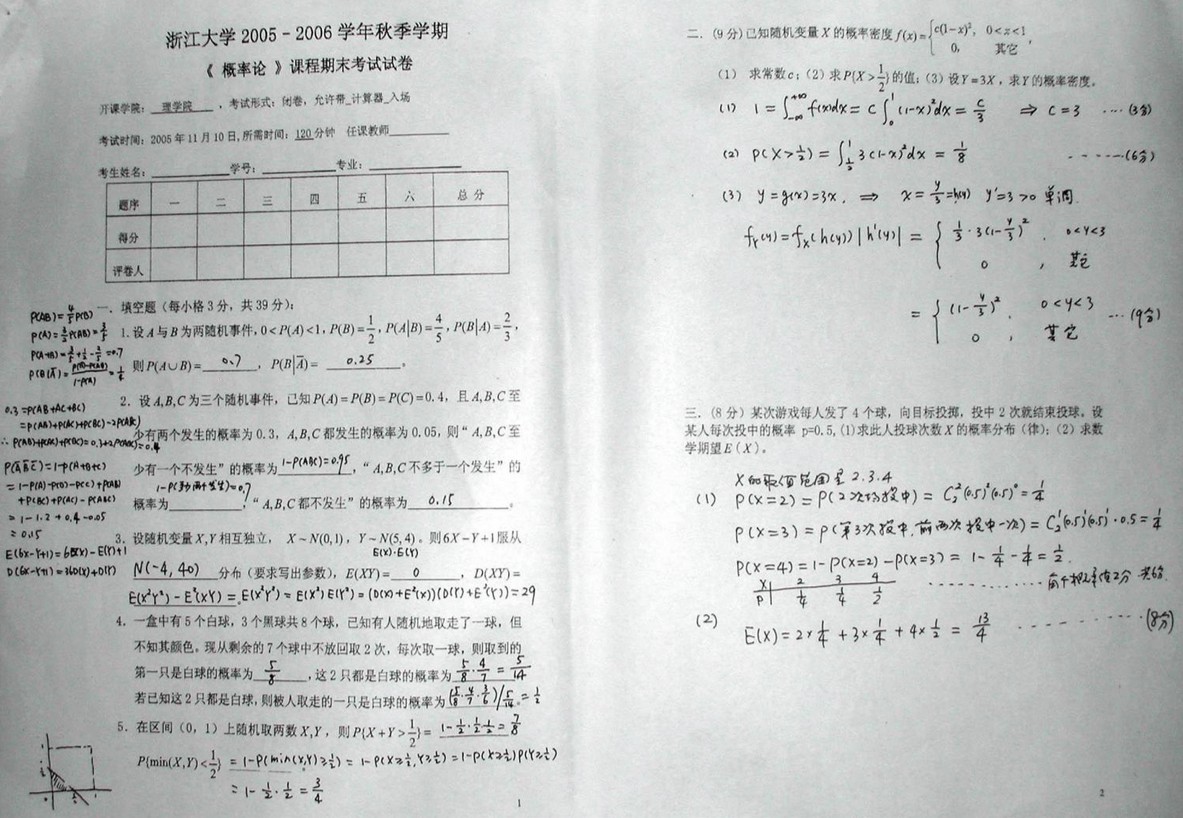 浙江大学 2005－2006 学年秋季学期
《 概率论 》课程期末考试试卷
开课学院： 理学院 ，考试形式：闭卷，允许带_计算器_入场
考试时间：2005 年 11 月 10 日,所需时间：120 分钟 任课教师________
考生姓名：________学号：________专业：________
题序 一 二 三 四 五 六 总 分
得分
评卷人
一．填空题（每小格 3 分，共 39 分）：
P(AB)=4/5 P(B)
P(A)=3/2 P(AB)=3/5
P(A+B)=3/5+1/2-2/5=0.7
P(B|A̅)=(P(B)-P(AB))/(1-P(A))=1/4
1. 设 A 与 B 为两随机事件，0<P(A)<1, P(B)=1/2, P(A|B)=4/5, P(B|A)=2/3，
则 P(A∪B)= 0.7 ，P(B|A̅)= 0.25 。
0.3=P(AB+AC+BC)
=P(AB)+P(AC)+P(BC)-2P(ABC)
∴ P(AB)+P(AC)+P(BC)=0.3+2P(ABC)=0.4
P(A̅B̅C̅)=1-P(A+B+C)
=1-P(A)-P(B)-P(C)+P(AB)
+P(BC)+P(AC)-P(ABC)
=1-1.2+0.4-0.05
=0.15
2．设 A,B,C 为三个随机事件，已知 P(A)=P(B)=P(C)=0.4，且 A,B,C 至
少有两个发生的概率为 0.3，A,B,C 都发生的概率为 0.05，则“ A,B,C 至
少有一个不发生”的概率为 1-P(ABC)=0.95 ，“ A,B,C 不多于一个发生”的
1-P(至少两个发生)=0.7
概率为________，“ A,B,C 都不发生”的概率为 0.15 。
E(6X-Y+1)=6E(X)-E(Y)+1
D(6X-Y+1)=36D(X)+D(Y)
3．设随机变量 X,Y 相互独立， X～N(0,1)，Y～N(5,4)。则 6X－Y+1 服从
E(X)·E(Y)
N(-4, 40) 分布（要求写出参数），E(XY)= 0 ，D(XY)=
E(X²Y²)-E²(XY)=E(X²Y²)=E(X²)E(Y²)=(D(X)+E²(X))(D(Y)+E²(Y))=29
4．一盒中有 5 个白球，3 个黑球共 8 个球，已知有人随机地取走了一球，但
不知其颜色。现从剩余的 7 个球中不放回取 2 次，每次取一球，则取到的
第一只是白球的概率为 5/8 ，这 2 只都是白球的概率为 5/8·4/7=5/14
若已知这 2 只都是白球,则被人取走的一只是白球的概率为 (5/8·4/7·3/6)/5/14。=1/2
5．在区间（0，1）上随机取两数 X,Y，则 P{X+Y>1/2}= 1-1/2·1/2·1/2=7/8
P{min(X,Y)<1/2} =1-P(min(X,Y)≥1/2)=1-P(X≥1/2,Y≥1/2)=1-P(X≥1/2)P(Y≥1/2)
=1-1/2·1/2=3/4
1
二．(9 分)已知随机变量 X 的概率密度 f(x)={c(1-x)², 0<x<1
0, 其它 ，
（1） 求常数 c；（2）求 P{X>1/2}的值；(3) 设 Y=3X，求 Y 的概率密度。
(1) 1=∫_{-∞}^{+∞} f(x)dx=c∫_0^1 (1-x)²dx=c/3 ⇒ c=3 ····(3分)
(2) P(X>1/2)=∫_{1/2}^1 3(1-x)²dx=1/8 -----(6分)
(3) y=g(x)=3x. ⇒ x=y/3=h(y) y'=3>0 单调.
f_Y(y)=f_X(h(y))|h'(y)|={1/3·3(1-y/3)². 0<y<3
0 , 其它
={(1-y/3)². 0<y<3 ···(9分)
0 , 其它
三．(8 分）某次游戏每人发了 4 个球，向目标投掷，投中 2 次就结束投球。设
某人每次投中的概率 p=0.5,(1)求此人投球次数 X 的概率分布（律）;（2）求数
学期望 E（X）。
X的取值范围是 2.3.4
(1) P(X=2)=P(2次均投中)=C₂²(0.5)²(0.5)⁰=1/4
P(X=3)=P(第3次投中,前两次投中一次)=C₂¹(0.5)¹(0.5)¹·0.5=1/4
P(X=4)=1-P(X=2)-P(X=3)=1-1/4-1/4=1/2.
X 2 3 4
P 1/4 1/4 1/2 ··········每个概率值2分
(2) E(X)=2×1/4+3×1/4+4×1/2=13/4 ·········(8分)
2